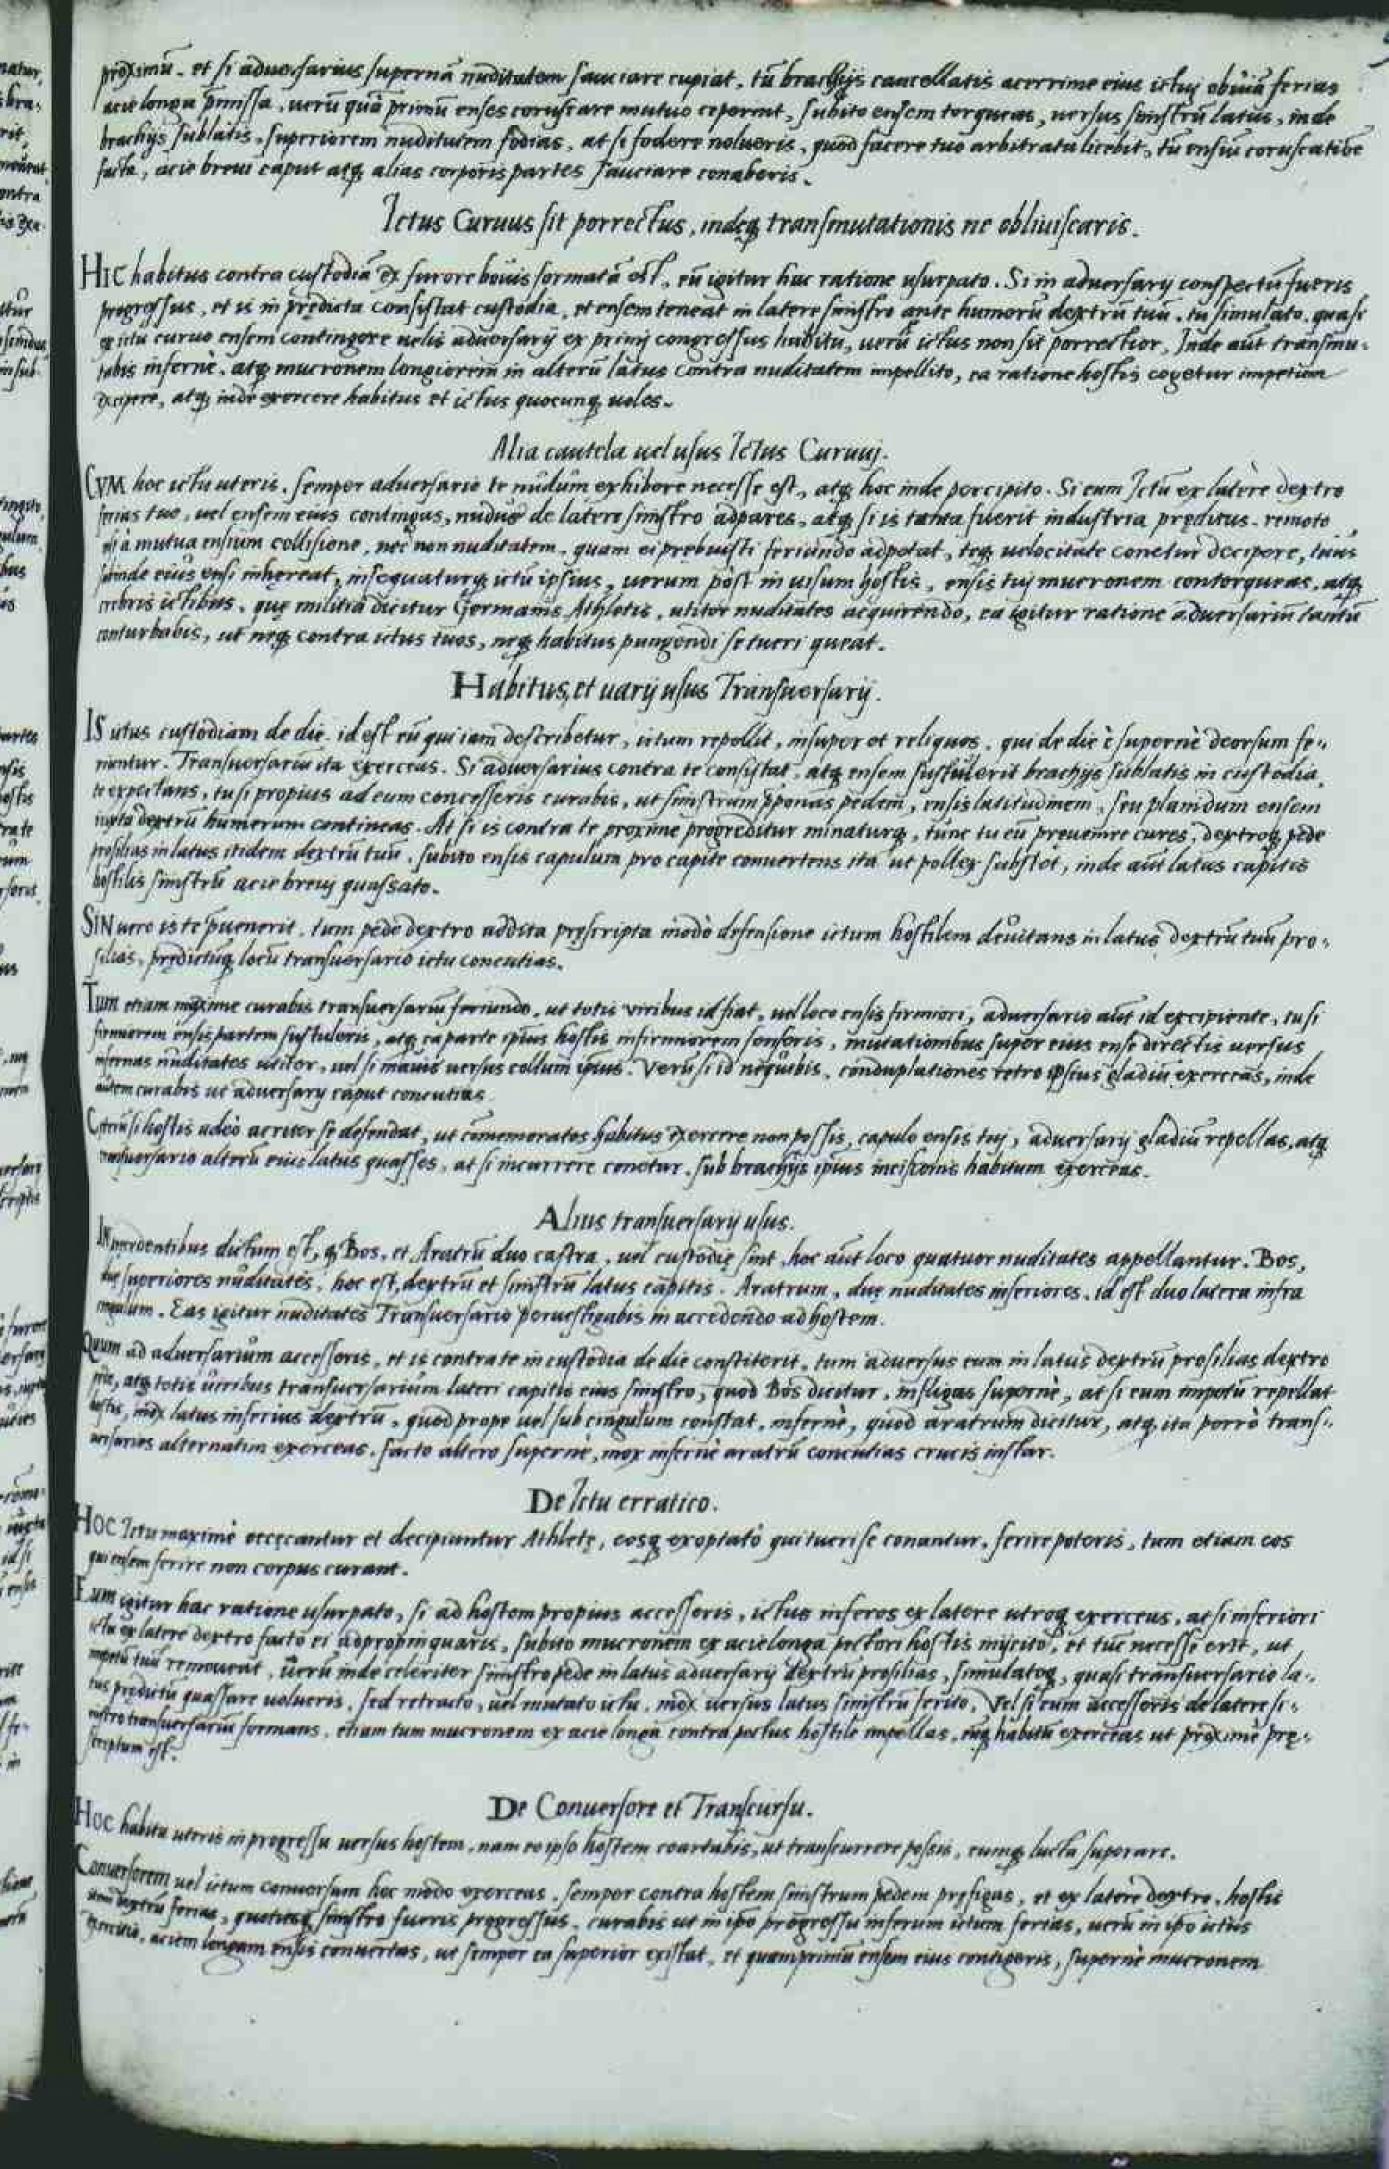 proximū. et si aduersarius supernā nuditatem sauciare cupiat, tū brachijs cancellatis acerrime eius ictuj obuiā ferias
acie longa p̄missa, uerū quā primū enses coruscare mutuo ceperint, subito ensem torqueas, uersus sinistrū latus, inde
brachijs sublatis, superiorem nuditatem fodias, at si fodere nolueris, quod facere tuo arbitratu licebit, tū ensiū coruscatiōe
facta, acie breui caput atq; alias corporis partes sauciare conaberis.
Ictus Curuus sit porrectus, indeq; transmutationis ne obliuiscaris.
HIC habitus contra custodiā ex furore bouis formatā est, eū igitur hac ratione usurpato. Si in aduersarij conspectū fueris
progressus, et is in predicta consistat custodia, et ensem teneat in latere sinistro ante humerū dextrū tuū, tu simulato, quasi
ex ictu curuo ensem contingere uelis aduersarij ex primj congressus habitu, uerū ictus non sit porrectior, Inde aūt transmu-
tabis infernè, atq; mucronem longiorem in alterū latus contra nuditatem impellito, ea ratione hostis cogetur impetum
excipere, atq; inde exercere habitus et ictus quocunq; uoles.
Alia cautela uel usus Ictus Curuuj.
CVM hoc ictu uteris, semper aduersario te nudum exhibere necesse est, atq; hoc inde percipito. Si eum Ictū ex latere dextro
ferias tuo, uel ensem eius contingas, nudus de latere sinistro adpares, atq; si is tanta fuerit industria preditus, remoto
à mutua ensium collisione, nec non nuditatem, quam ei prebuisti feriundo adpetat, teq; uelocitate conetur decipere, tuus
deinde eius ensi inhereat, insequaturq; ictū ipsius, uerum post in uisum hostis, ensis tuj mucronem contorqueas, atq;
crebris ictibus, quę militia dicitur Germanis Athletis, utitor nuditates acquirendo, ea igitur ratione aduersariū tantū
conturbabis, ut neq; contra ictus tuos, neq; habitus pungendi se tueri queat.
Habitus, et uarij usus Transuersarij.
IS ictus custodiam de die, id est eū qui iam describetur, ictum repellit, insuper et reliquos, qui de die è supernè deorsum fe-
riuntur. Transuersariū ita exerceas. Si aduersarius contra te consistat, atq; ensem sustulerit brachijs sublatis in custodia
te expectans, tu si propius ad eum concesseris curabis, ut sinistrum p̄ponas pedem, ensis latitudinem, seu planidum ensem
iuxta dextrū humerum contineas. At si is contra te proxime progreditur minaturq;, tunc tu eū preuenire cures, dextroq; pede
prosilias in latus itidem dextrū tuū, subito ensis capulum pro capite conuertens ita ut pollex substet, inde aūt latus capitis
hostilis sinistrū acie breuj quassato.
SIN uero is te p̄uenerit, tum pede dextro addita prescripta modò defensione ictum hostilem deuitans in latus dextrū tuū pro-
silias, predictūq; locū transuersario ictu concutias.
Tum etiam maxime curabis transuersariū feriundo, ut totis viribus id fiat, uel loco ensis firmiori, aduersario aūt id excipiente, tu si
firmiorem ensis partem sustuleris, atq; ea parte ipsius hostis infirmiorem senseris, mutationibus super eius ense directis uersus
infernas nuditates utitor, uel si mauis uersus collum ipsius. Verū si id nequibis, conduplationes retro ipsius gladiū exerceas, inde
autem curabis ut aduersarij caput concutias.
Ceterū si hostis adeò acriter se defendat, ut cōmemoratos habitus exercere non possis, capulo ensis tuj, aduersarij gladiū repellas, atq;
transuersario alterū eius latus quasses, at si incurrere conetur, sub brachijs ipsius incisionis habitum exerceas.
Alius transuersarij usus.
IN precedentibus dictum est, q; Bos, et Aratrū duo castra, uel custodię sint, hoc aūt loco quatuor nuditates appellantur. Bos,
due superiores nuditates, hoc est, dextrū et sinistrū latus capitis. Aratrum, duę nuditates inferiores, id est duo latera infra
cingulum. Eas igitur nuditates Transuersario peruestigabis in accedendo ad hostem.
Quum ad aduersarium accesseris, et is contra te in custodia de die constiterit, tum aduersus eum in latus dextrū prosilias dextro
pede, atq; totis uiribus transuersarium lateri capitis eius sinistro, quod Bos dicitur, infligas supernè, at si eum impetū repellat
hostis, mox latus inferius dextrū, quod prope uel sub cingulum constat, infernè, quod aratrum dicitur, atq; ita porrò trans-
uersarios alternatim exerceas, facto altero supernè, mox infernè aratrū concutias crucis instar.
De Ictu erratico.
HOC Ictu maximè occęcantur et decipiuntur Athletę, eosq; exoptatò qui tueri se conantur, ferire poteris, tum etiam eos
qui ensem ferire non corpus curant.
Eum igitur hac ratione usurpato, si ad hostem propius accesseris, ictus inferos ex latere utroq; exerceas, at si inferiori
ictu ex latere dextro facto ei adpropinquaris, subito mucronem ex acie longa pectori hostis inijcito, et tūc necesse erit, ut
impetū tuū remoueat, uerū inde celeriter sinistro pede in latus aduersarij dextrū prosilias, simulatoq;, quasi transuersario la-
tus predictū quassare uolueris, sed retracto, uel mutato ictu, mox uersus latus sinistrū ferito. Vel si eum accesseris de latere si-
nistro transuersariū formans, etiam tum mucronem ex acie longa contra pectus hostile impellas, eūq; habitū exerceas ut proximè prę-
scriptum est.
De Conuersore et Transcursu.
HOC habitu uteris in progressu uersus hostem, nam eo ipso hostem coartabis, ut transcurrere possis, eumq; lucta superare.
Conuersorem uel ictum conuersum hoc modo exerceas, semper contra hostem sinistrum pedem prefigas, et ex latere dextro, hostis
dextrū ferias, quotiesq; sinistro fueris progressus, curabis ut in ipso progressu inferum ictum ferias, uerū in ipso ictus
exercitio, aciem longam ensis conuertas, ut semper ea superior existat, et quamprimū ensem eius contigeris, supernè mucronem